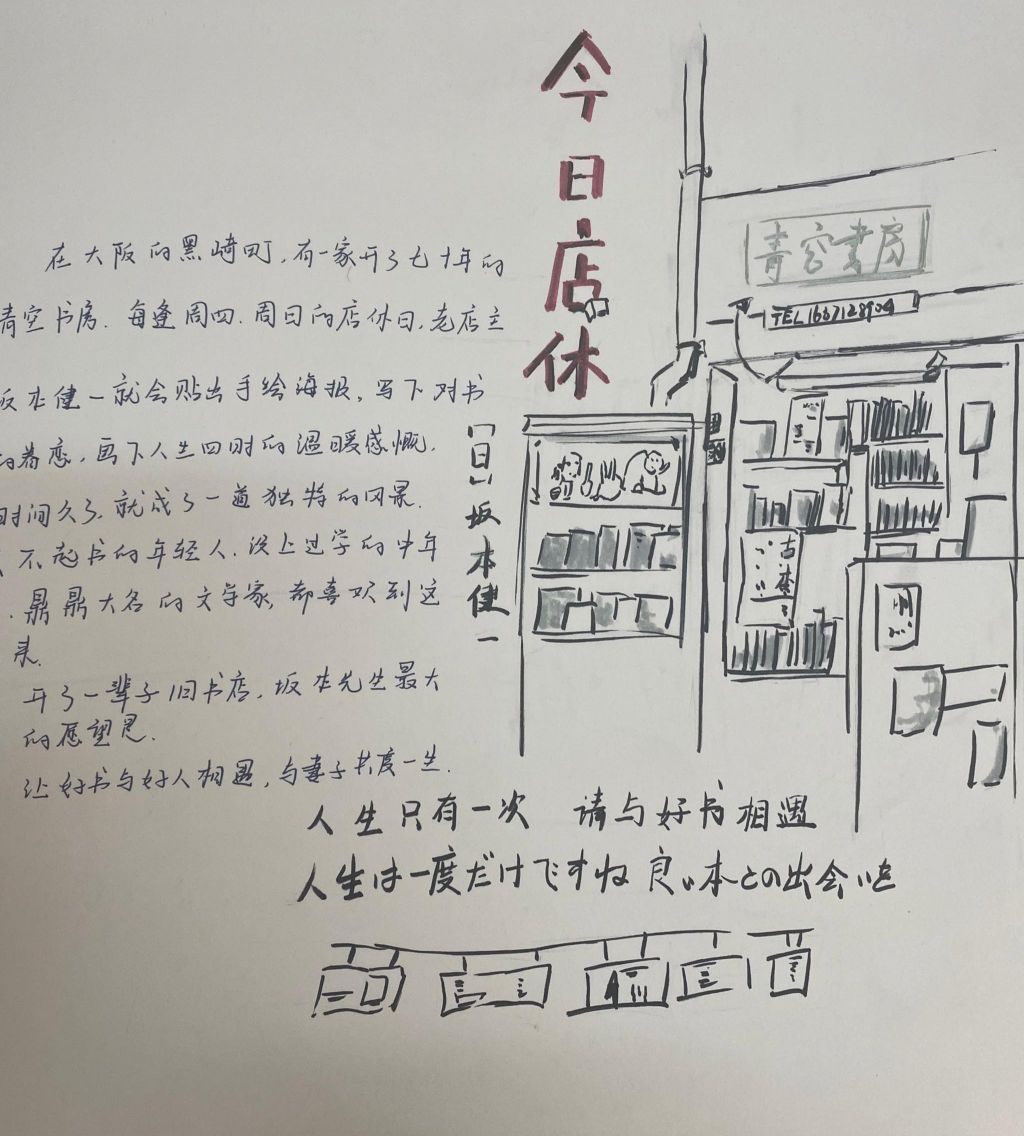 今日店休
[日]坂本健一
在大阪的黑崎町,有一家开了七十年的
青空书房.每逢周四.周日的店休日,老店主
坂本健一就会贴出手绘海报,写下对书
的眷恋,画下人生四时的温暖感慨.
时间久了,就成了一道独特的风景.
不起书的年轻人.没上过学的中年
.鼎鼎大名的文学家,都喜欢到这
来.
开了一辈子旧书店,坂本先生最大
的愿望是.
让好书与好人相遇,与妻子共度一生.
青空書房
TEL
古本
人生只有一次 请与好书相遇
人生は一度だけですね 良い本との出会いを